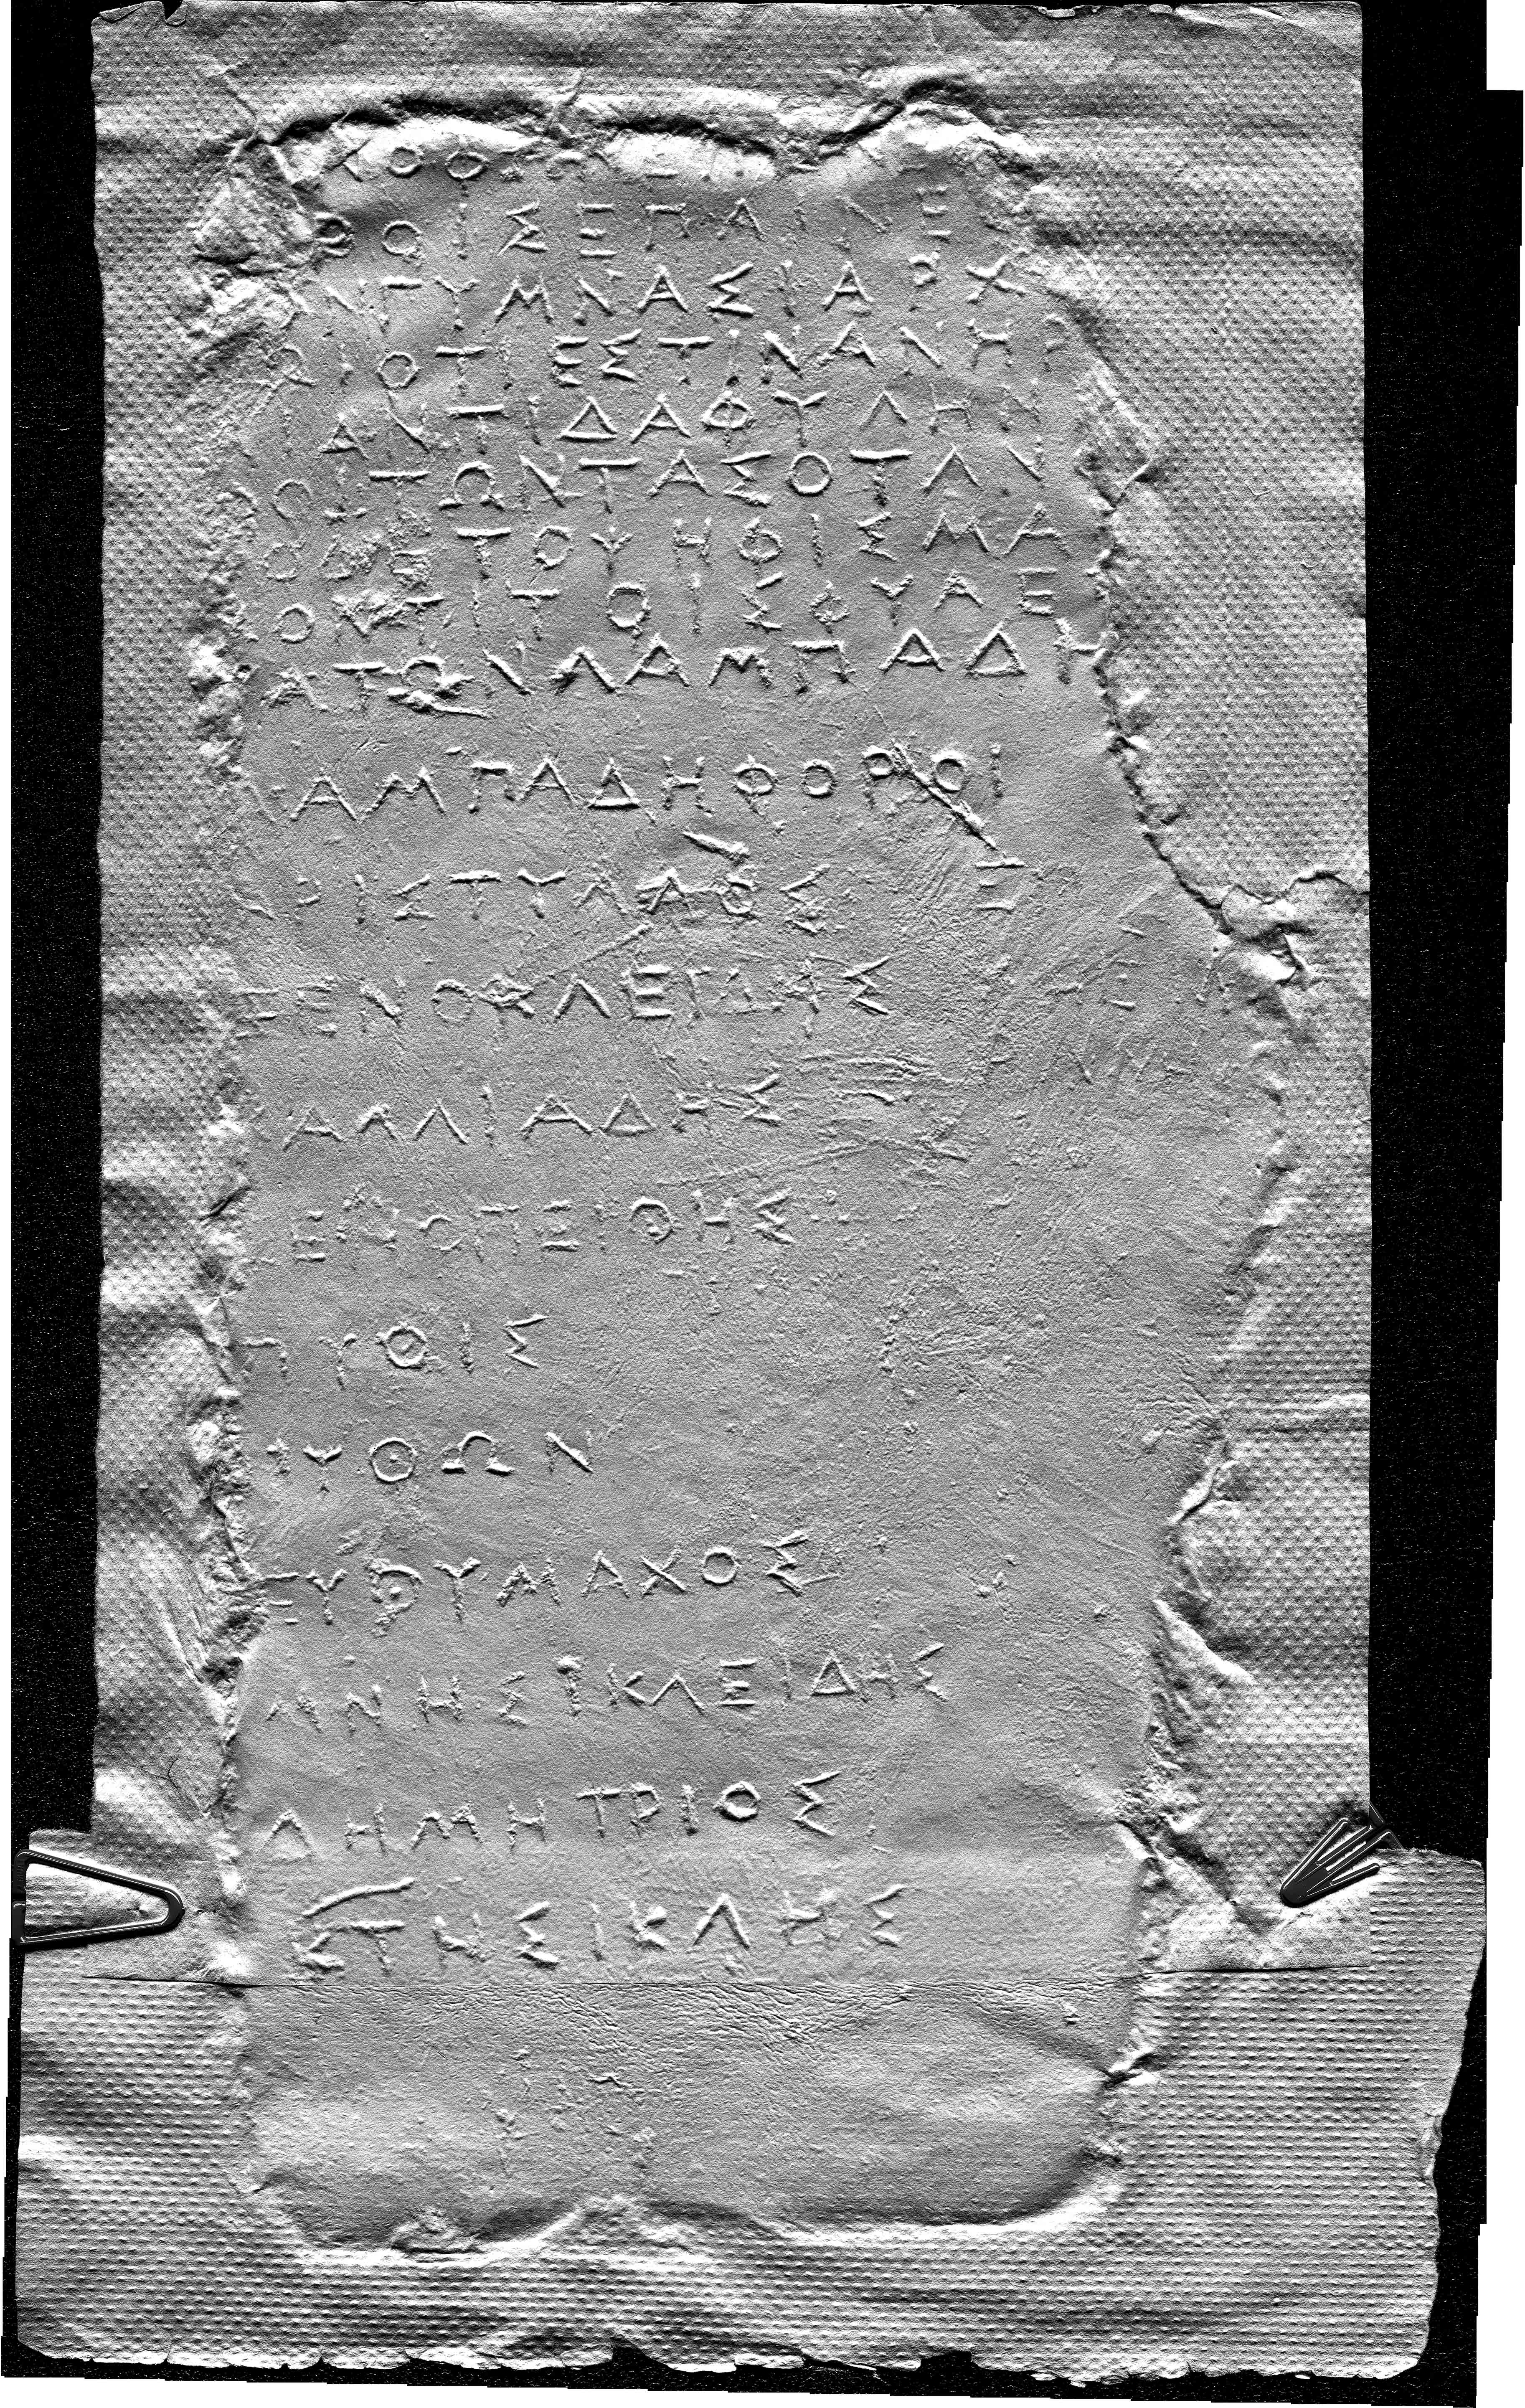 ΘΟΙΣΕΠΑΙΝΕ
ΝΓΥΜΝΑΣΙΑΡΧ
ΡΙΟΤΙΕΣΤΙΝΑΝΗΡ
ΙΑΝΤΙΔΑΦΥΛΗΝ
ΡΟΙΤΩΝΤΑΣΟΤΑΝ
ΟΔΕΤΟΨΗΦΙΣΜΑ
ΤΟΙΣΦΥΛΕ
ΑΤΩΝΛΑΜΠΑΔΗ
ΑΜΠΑΔΗΦΟΡΟΙ
ΡΙΣΤΥΛΛΟΣ
ΞΕΝΟΚΛΕΙΔΗΣ
ΑΛΛΙΑΔΗΣ
ΕΡΟΠΕΙΘΗΣ
ΠΥΘΙΣ
ΠΥΘΩΝ
ΕΥΘΥΜΑΧΟΣ
ΜΝΗΣΙΚΛΕΙΔΗΣ
ΔΗΜΗΤΡΙΟΣ
ΚΤΗΣΙΚΛΗΣ